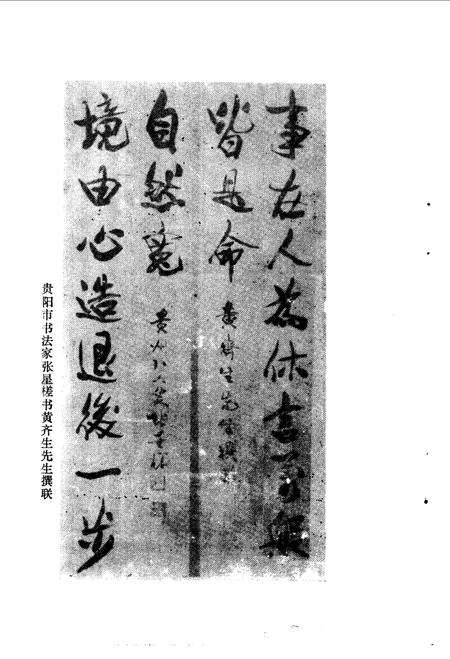 事在人為休言万般
皆是命
黄齊生先生撰联
境由心造退後一步
自然寬
贵州
贵阳市书法家张星槎书黄齐生先生撰联